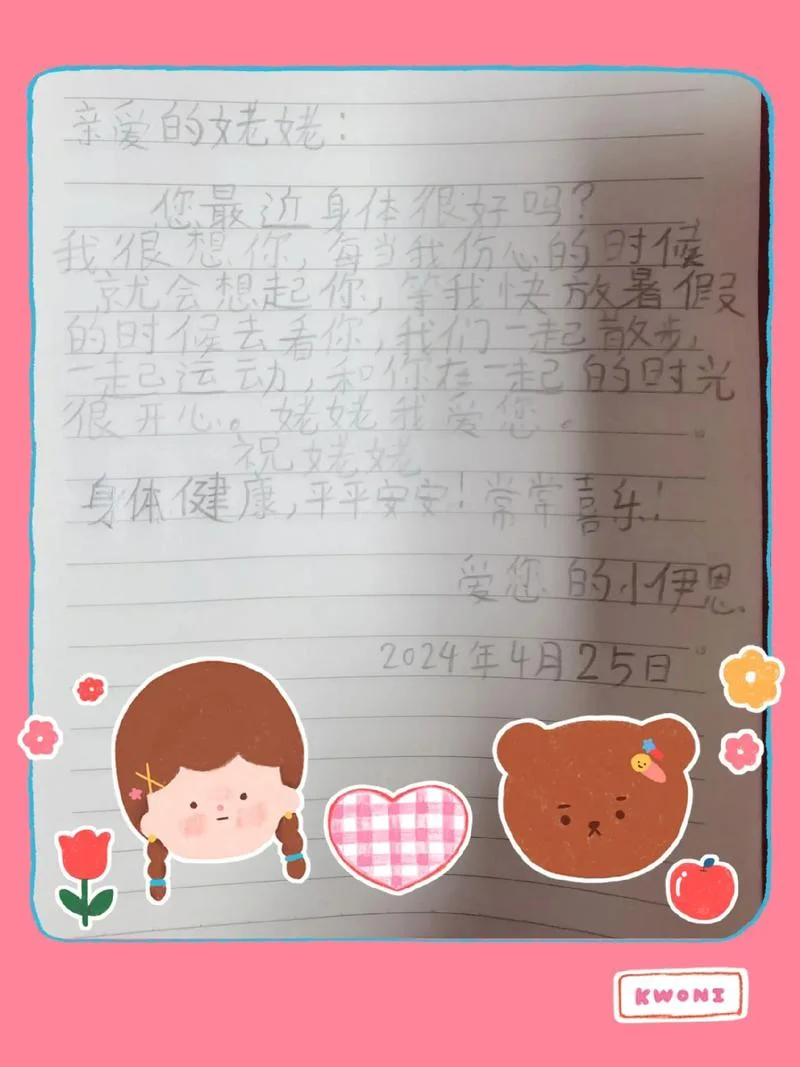 亲爱的姥姥：
您最近身体很好吗？
我很想你，每当我伤心的时候
就会想起你，等我快放暑假
的时候去看你，我们一起散步，
一起运动，和你在一起的时光
很开心。姥姥我爱您。
祝姥姥
身体健康，平平安安！常常喜乐！
爱您的小伊恩
2024年4月25日
KWONI